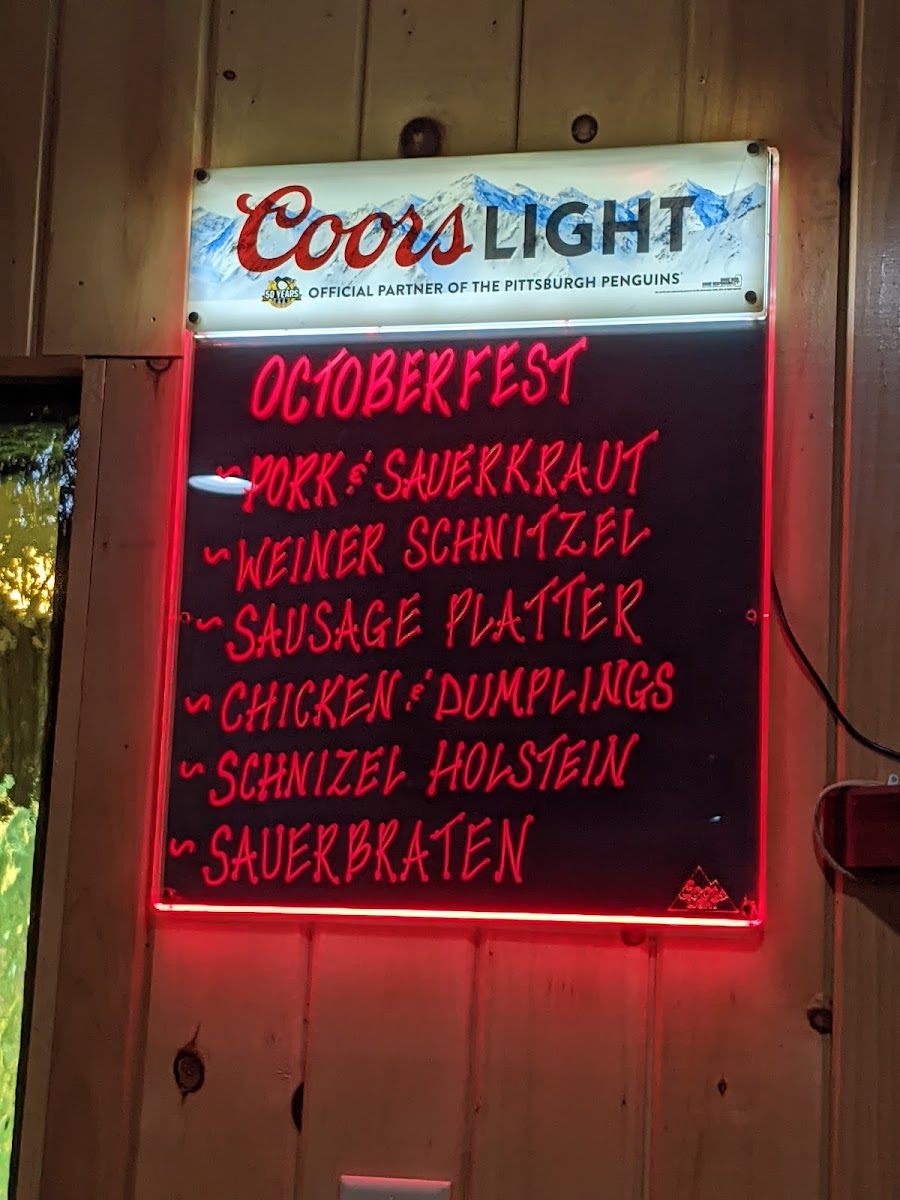 Coors LIGHT
50 YEARS
OFFICIAL PARTNER OF THE PITTSBURGH PENGUINS
OCTOBERFEST
~ PORK & SAUERKRAUT
~ WEINER SCHNITZEL
~ SAUSAGE PLATTER
~ CHICKEN & DUMPLINGS
~ SCHNIZEL HOLSTEIN
~ SAUERBRATEN